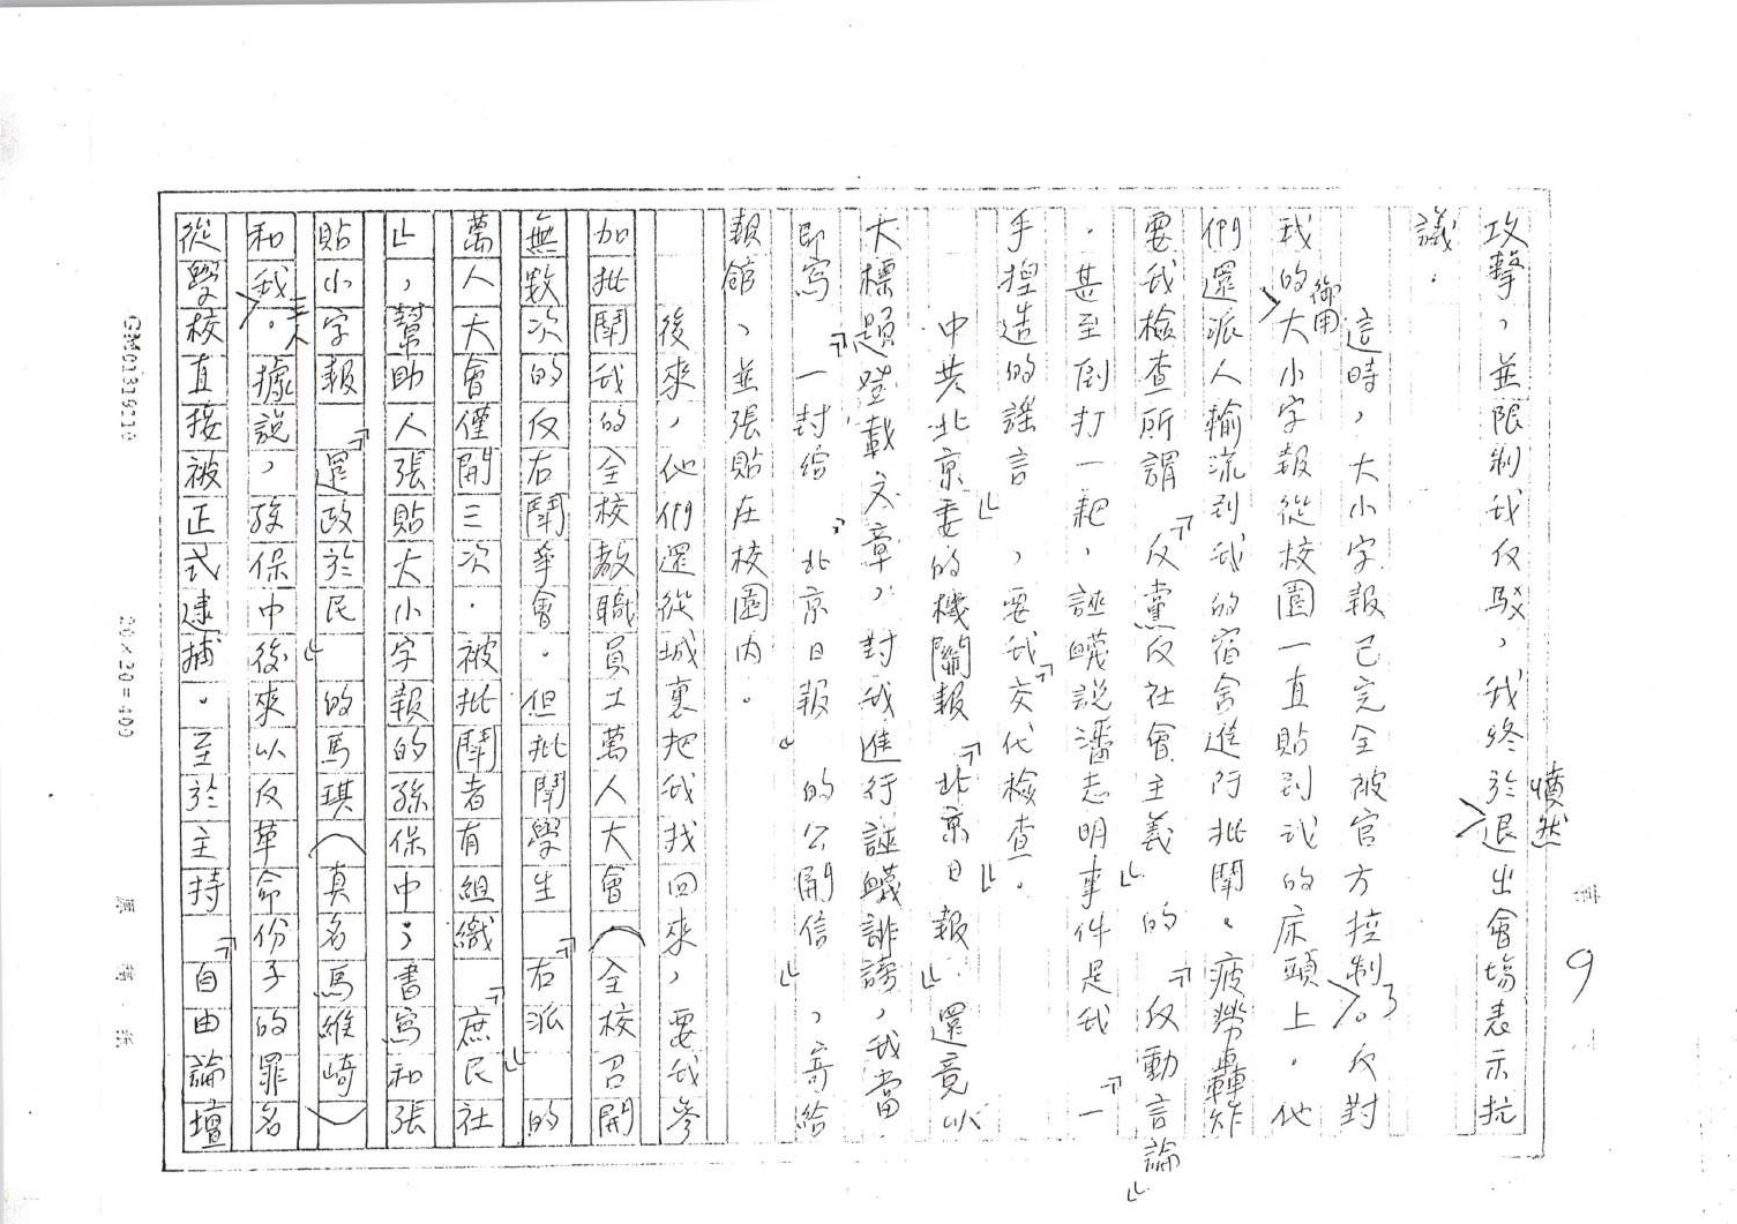 攻擊，並限制我反駁，我終於憤然退出會場表示抗
議．
這時，大小字報已完全被官方控制了。反對
我的御用大小字報從校園一直貼到我的床頭上．他
們還派人輪流到我的宿舍進行批鬥。疲勞轟炸
要我檢查所謂『反黨反社會主義』的『反動言論』
．甚至倒打一耙，誣衊說潘志明事件是我『一
手揑造的謠言』，要我『交代檢查』。
中共北京委的機關報『北京日報』還竟以
大標題登載文章，對我進行誣衊誹謗，我當
即寫『一封給『北京日報』的公開信』，寄給
報館，並張貼在校園內．
後來，他們還從城裏把我找回來，要我參
加批鬥我的全校教職員工萬人大會（全校召開
無數次的反右鬥爭會．但批鬥學生『右派』的
萬人大會僅開三次．被批鬥者有組織『庶民社
』，幫助人張貼大小字報的孫保中；書寫和張
貼小字報『還政於民』的馬琪（真名馬維崎）
和我三人。據說，孫保中後來以反革命份子的罪名
從學校直接被正式逮捕．至於主持『自由論壇
9
20×20=400